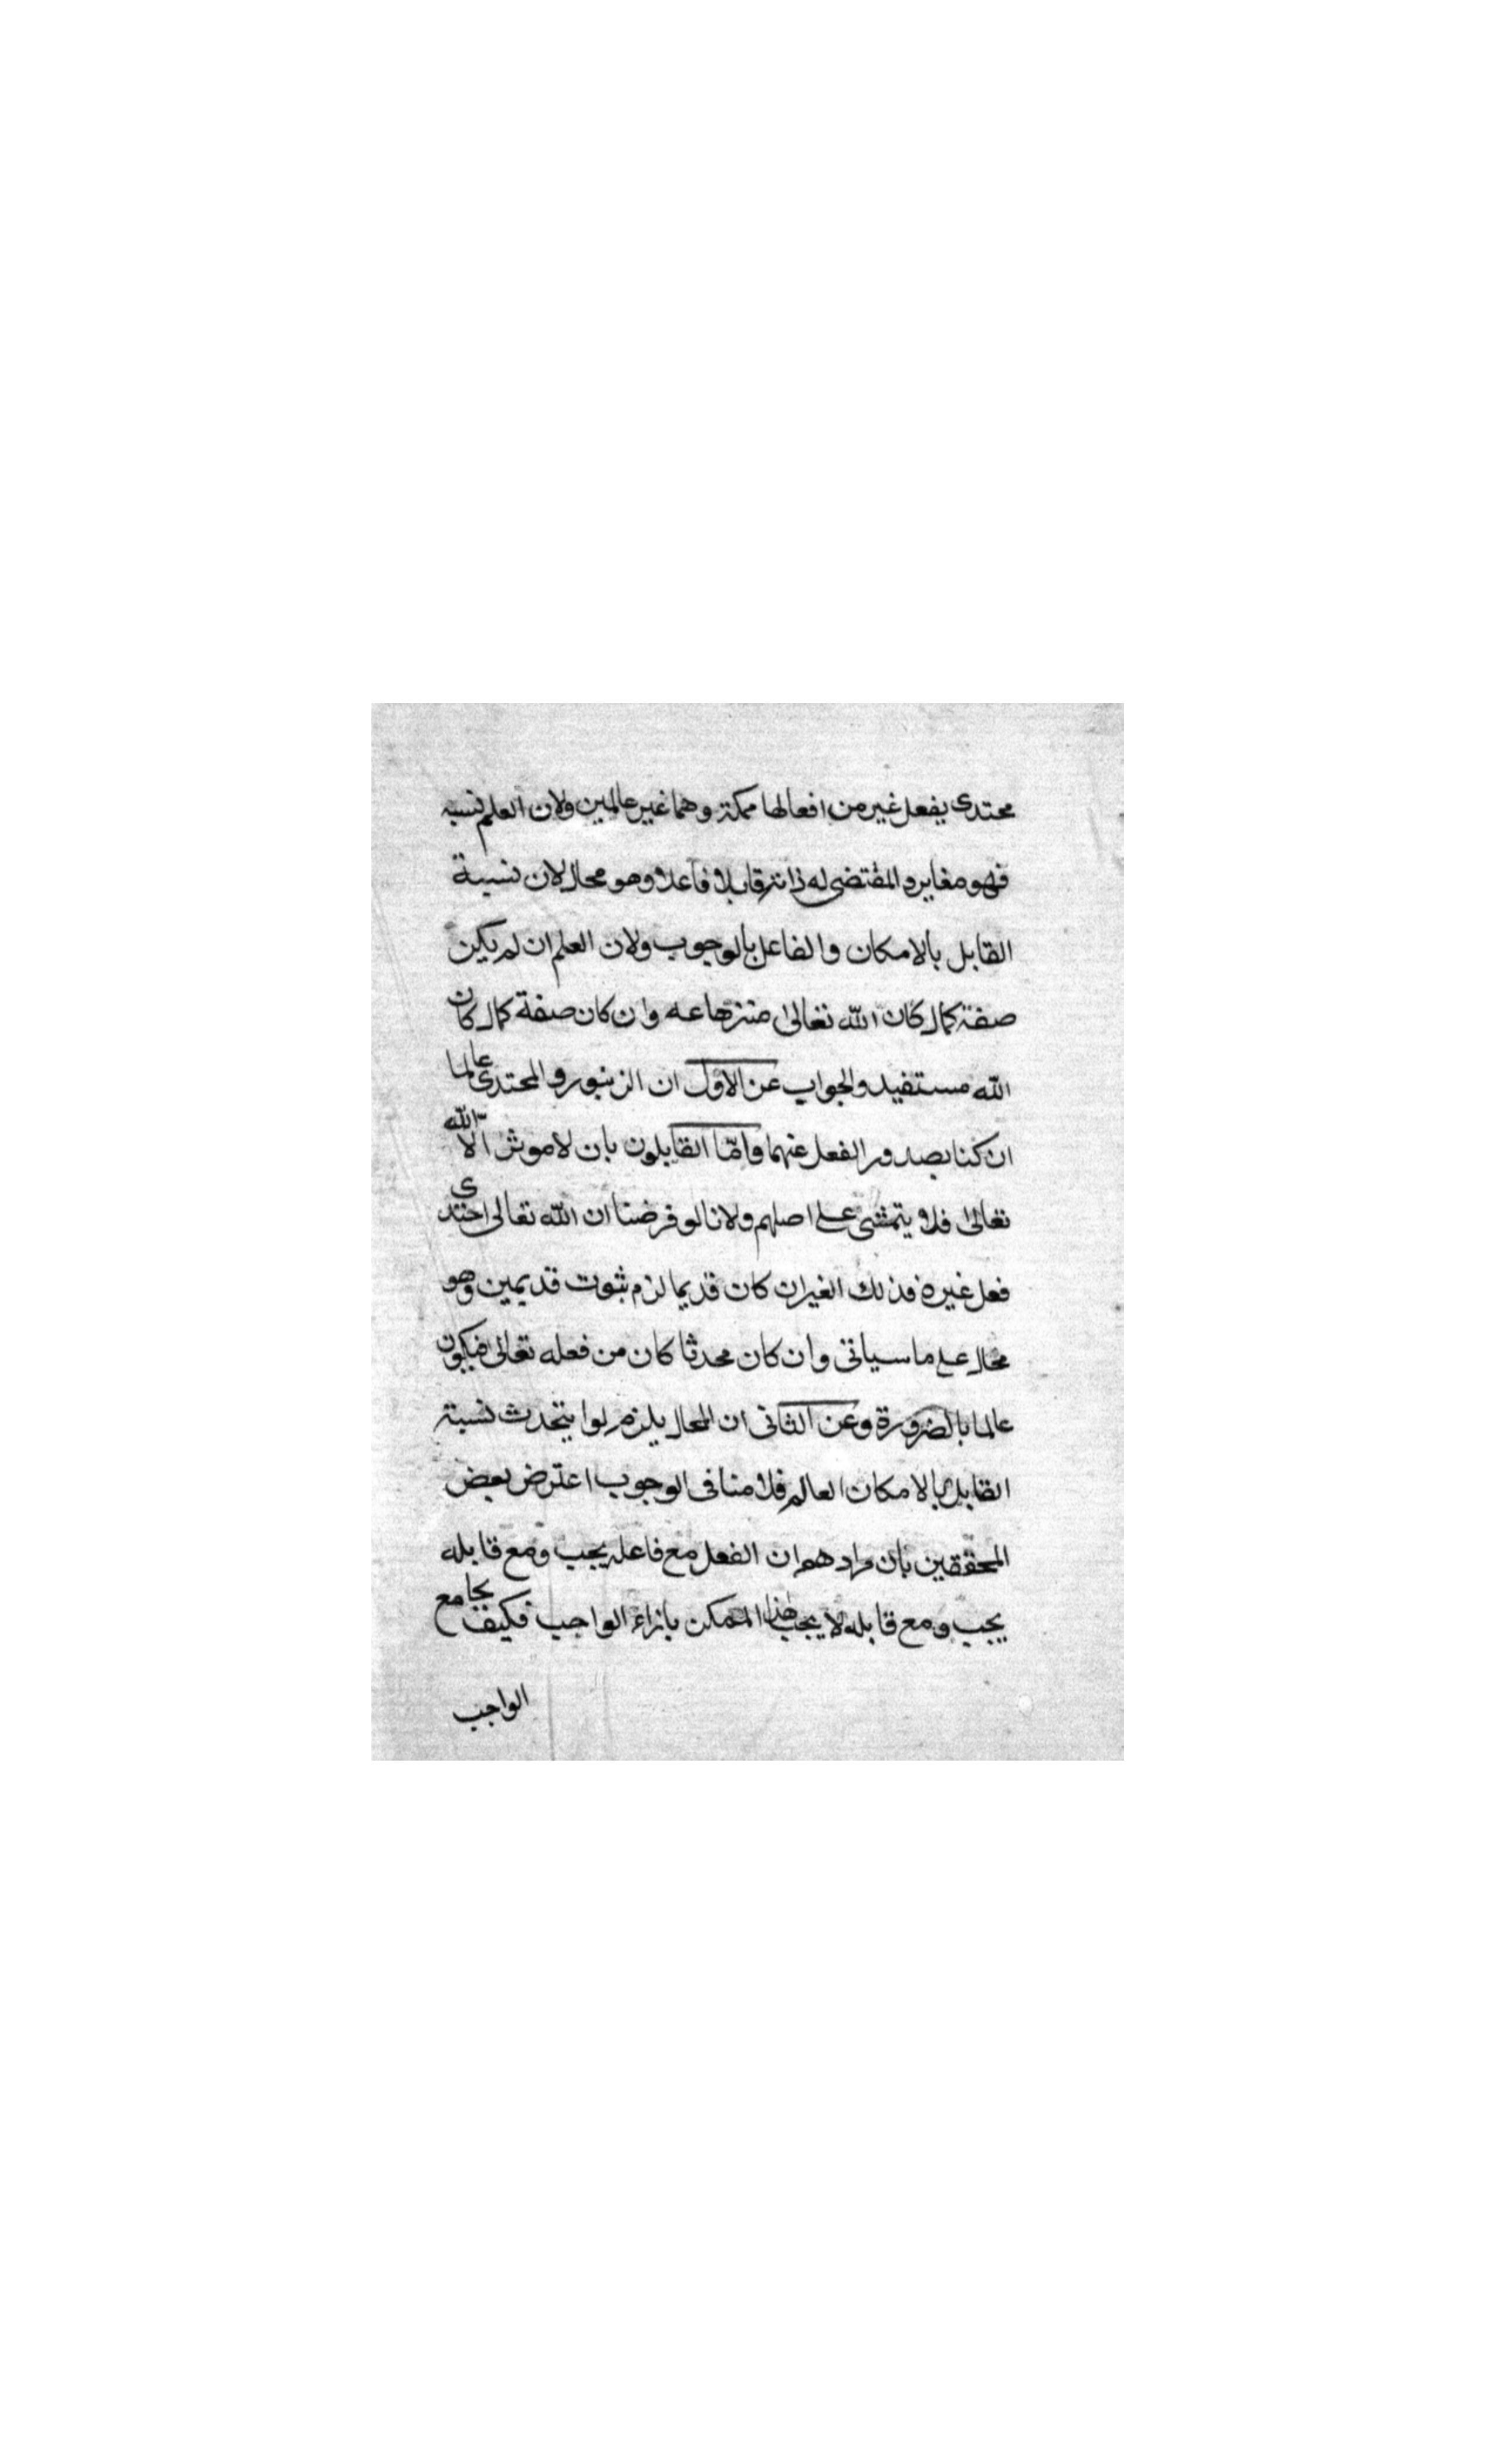 محتدى يفعل غير من افعالها ممكمة وهما غير عالمين ولان العلم نسبه
فهو مغاير والمقتضى له ذاته قابلا فاعلا وهو محال لان نسبة
القابل بالامكان والفاعل بالوجوب ولان العلم ان لم يكن
صفة كمال كان الله تعالى منزها عنه وان كان صفة كمال كان
الله مستفيد والجواب عن الاول ان الزنبور والمحتدى عالما
ان كنا بصدور الفعل عنهما واما القايلون بان لا موثر الا الله
تعالى فلا يتمشى على اصلهم ولانا لو فرضنا ان الله تعالى احتدى
فعل غيره فذلك الغير ان كان قديما لزم ثبوت قديمين وهو
محال على ما سياتى وان كان محدثا كان من فعله تعالى فيكون
عالما بالضرورة وعن الثانى ان المحال يلزم لوا يتحدث نسبته
القابل بالامكان العالم فلا منافى الوجوب اعترض بعض
المحققين بان مرادهم ان الفعل مع فاعله يجب ومع قابله
يجب ومع قابله لا يجب هذا الممكن بازاء الواجب فكيف يجامع
الواجب